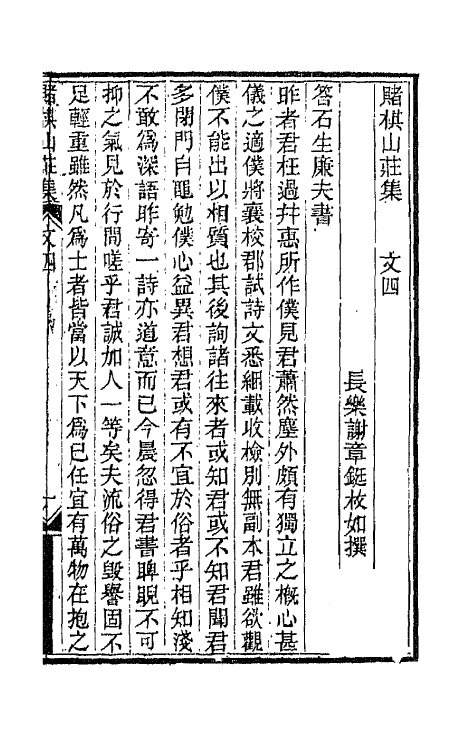 賭棋山莊集　　文四
長樂謝章鋌枚如撰
答石生廉夫書
昨者君枉過幷惠所作僕見君蕭然塵外頗有獨立之概心甚
儀之適僕將襄校郡試詩文悉細載收檢別無副本君雖欲觀
僕不能出以相質也其後詢諸往來者或知君或不知君聞君
多閉門自黽勉僕心益異君想君或有不宜於俗者乎相知淺
不敢爲深語昨寄一詩亦道意而已今晨忽得君書睥睨不可
抑之氣見於行間嗟乎君誠加人一等矣夫流俗之毀譽固不
足輕重雖然凡爲士者皆當以天下爲己任宜有萬物在抱之
賭棋山莊集　文四　一